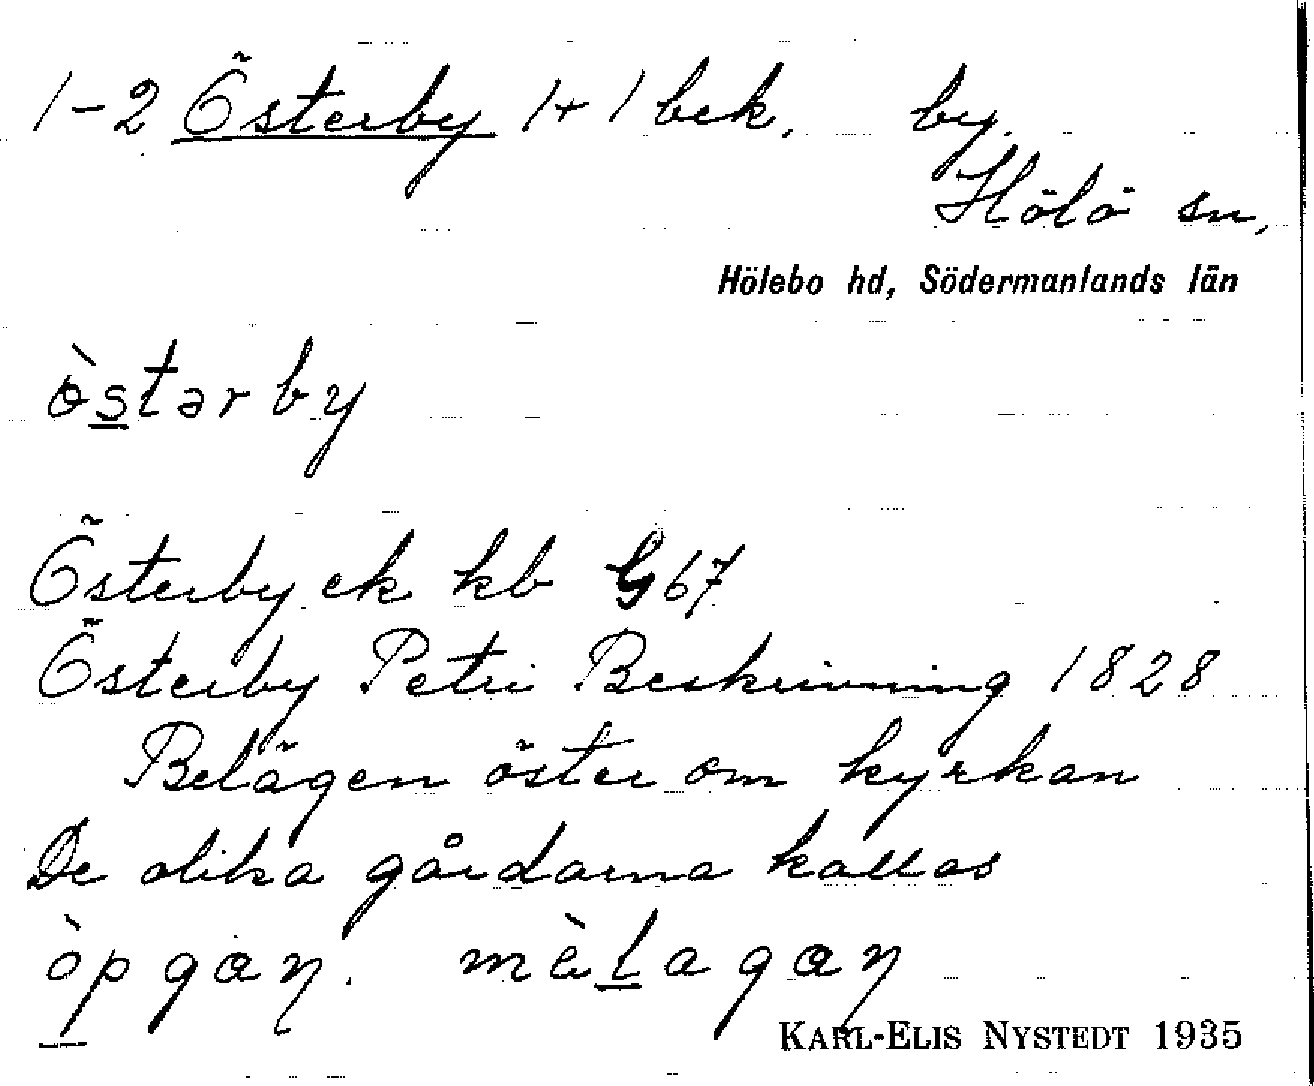 1-2 Österby 1+1 bek. by.
Hölö sn,
Hölebo hd, Södermanlands län
ö̀stərby
Österby ek kb G67
Österby Petri Beskrivning 1828
Belägen öster om kyrkan
De olika gårdarna kallas
òpgaŋ. mèlagaŋ
KARL-ELIS NYSTEDT 1935